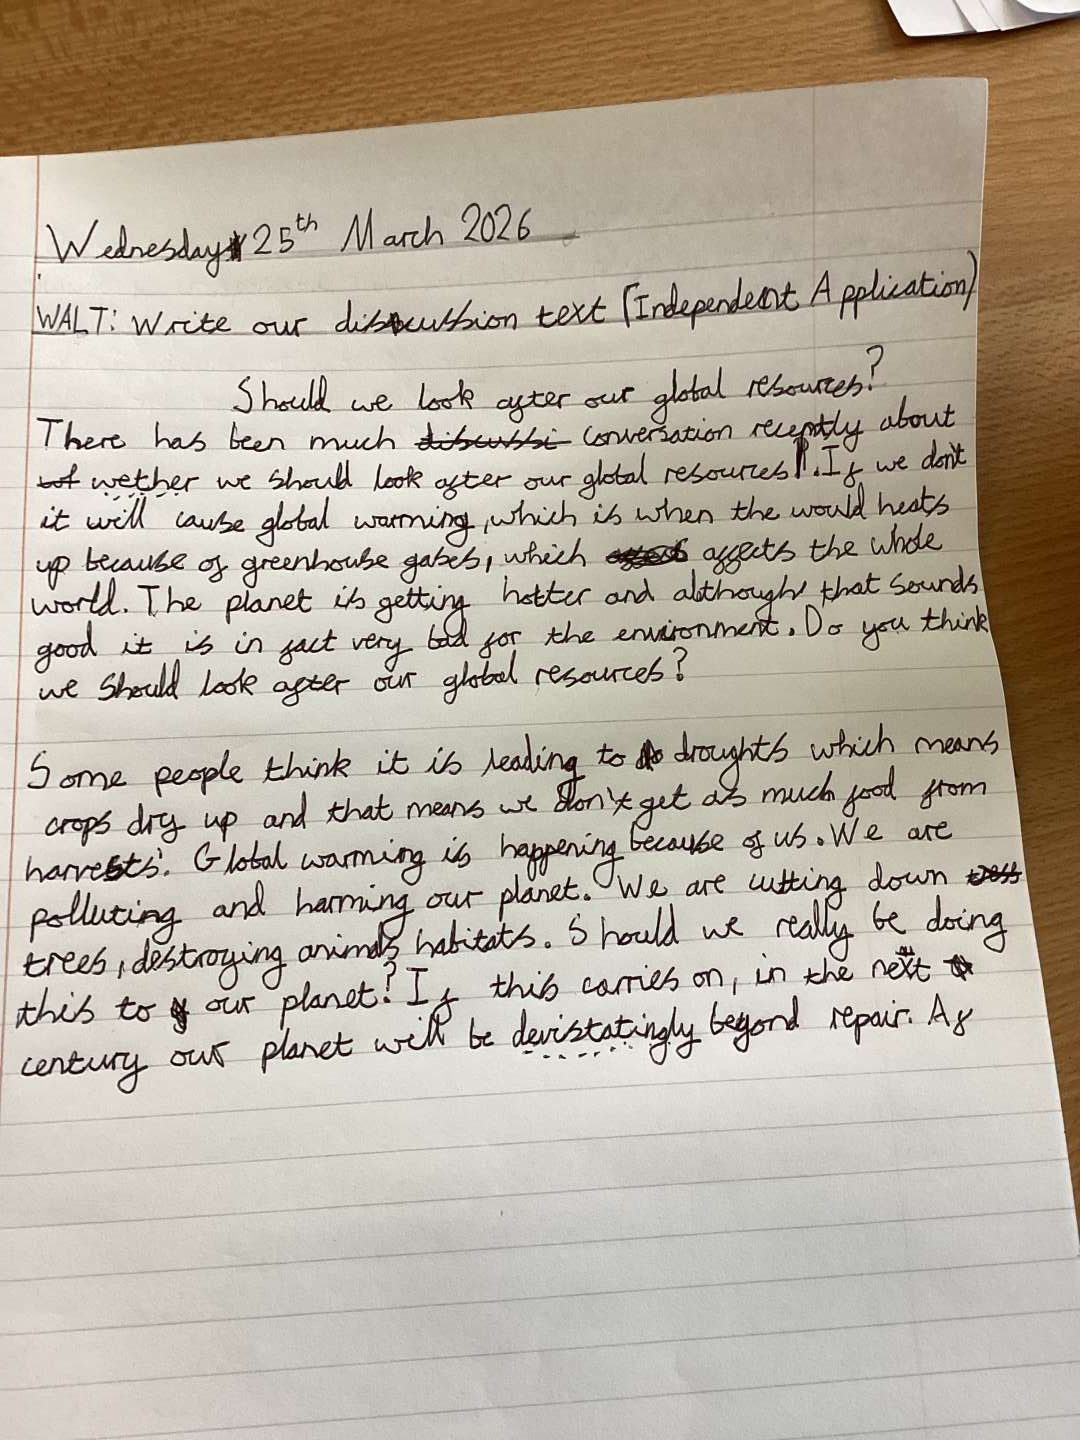 Wednesday 25th March 2026
WALT: Write our discussion text (Independent Application)
Should we look after our global resources?
There has been much discussi conversation recently about
wether we should look after our global resources. If we don't
it will cause global warming, which is when the would heats
up because of greenhouse gases, which affects the whole
world. The planet is getting hotter and although that sounds
good it is in fact very bad for the environment. Do you think
we should look after our global resources?
Some people think it is leading to droughts which means
crops dry up and that means we don't get as much food from
harvests. Global warming is happening because of us. We are
polluting and harming our planet. We are cutting down tress
trees, destroying animals habitats. Should we really be doing
this to our planet? If this carries on, in the next
century our planet will be devistatingly beyond repair. As